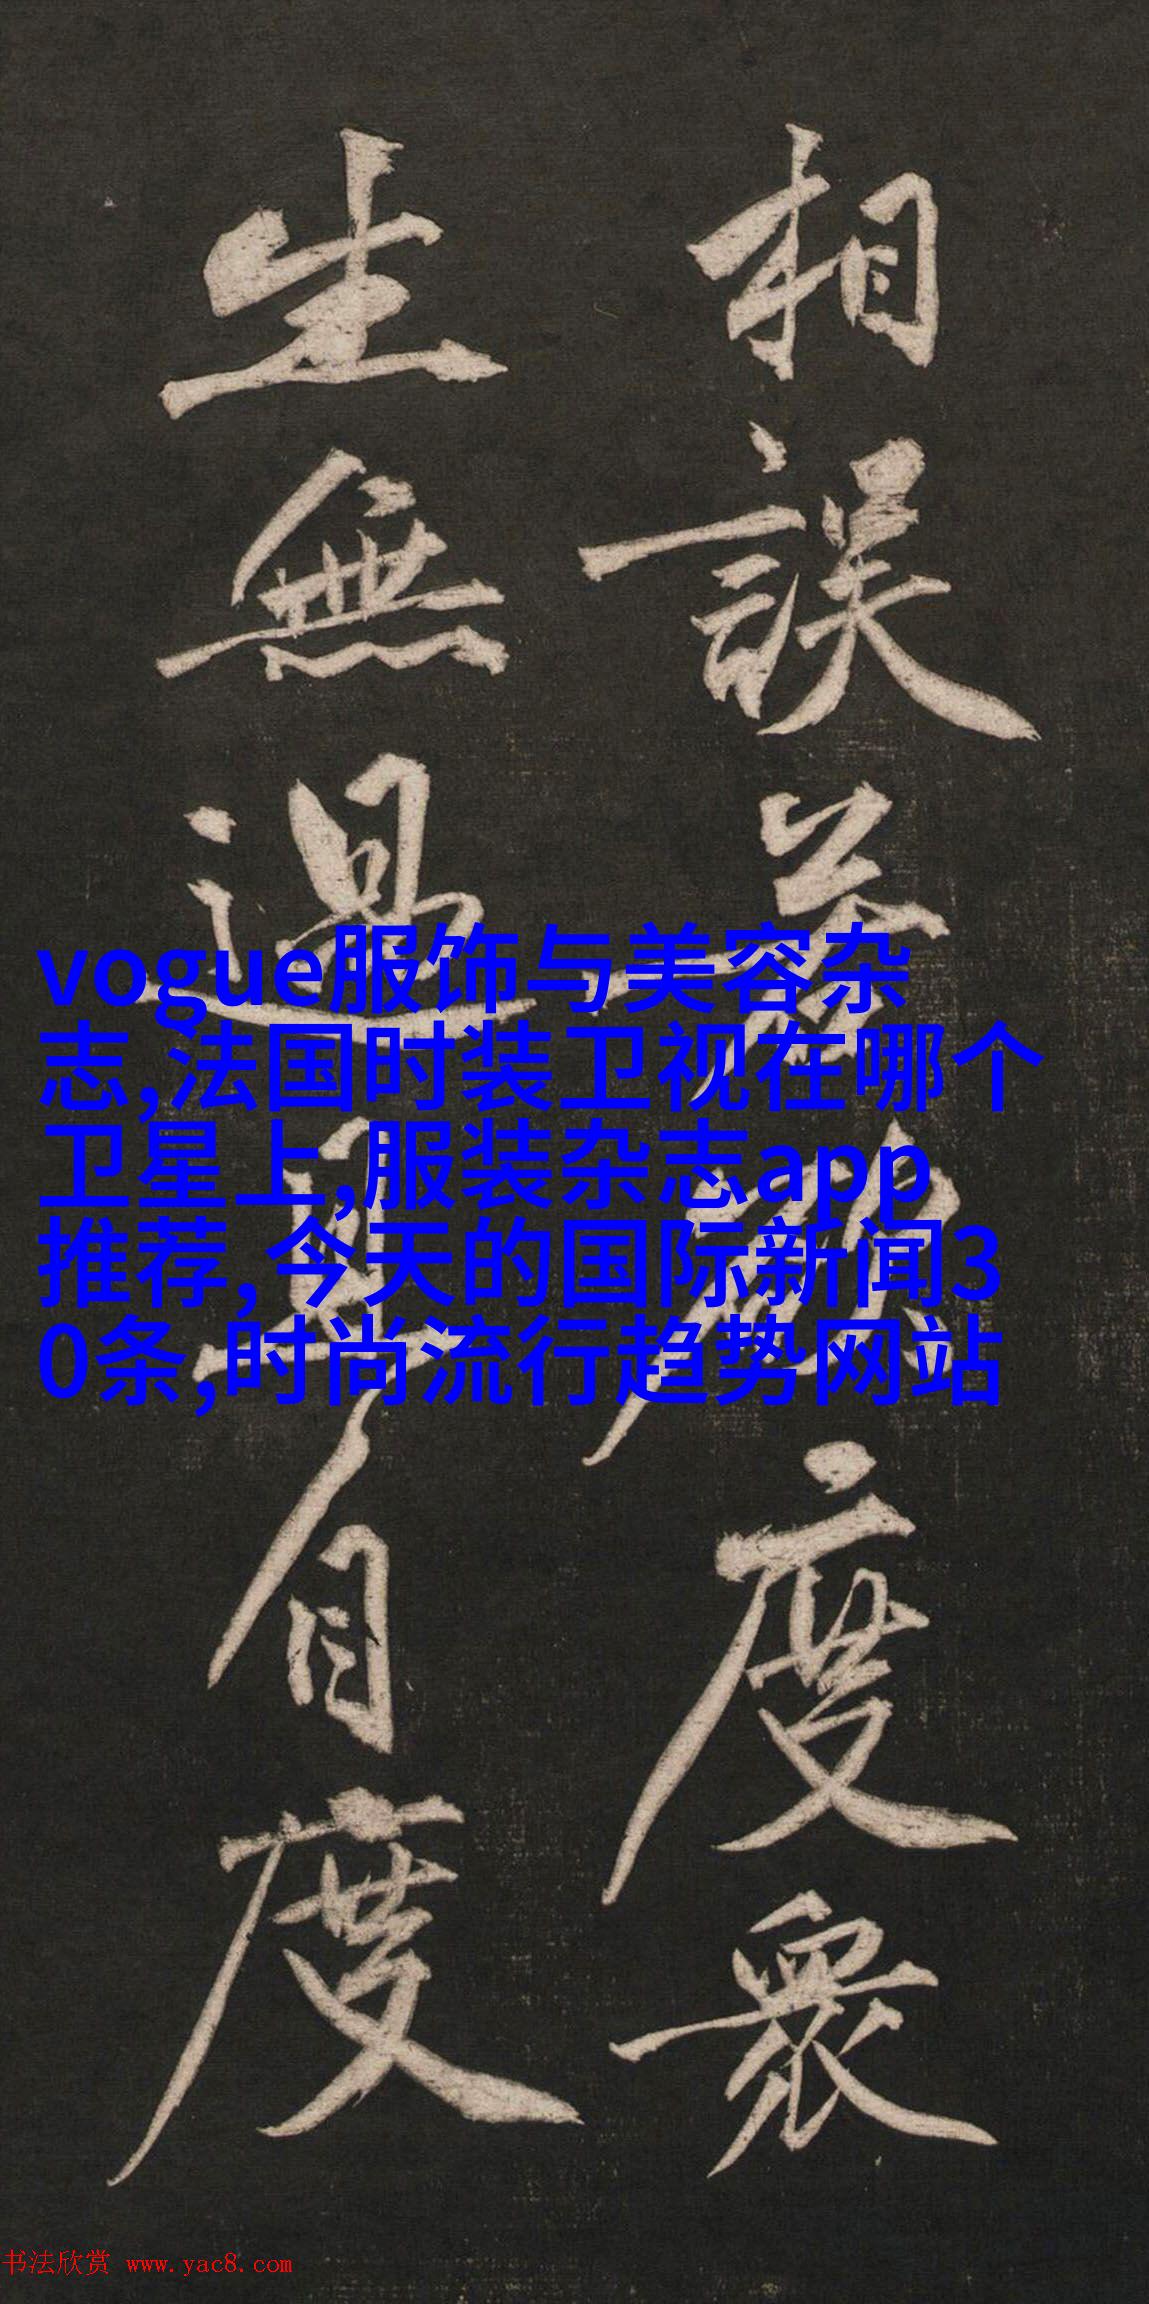 相誤若欲度衆
生無過且自度
vogue服饰与美容杂
志,法国时装卫视在哪个
卫星上,服装杂志app
推荐,今天的国际新闻3
0条,时尚流行趋势网站
书法欣赏 www.yac8.com